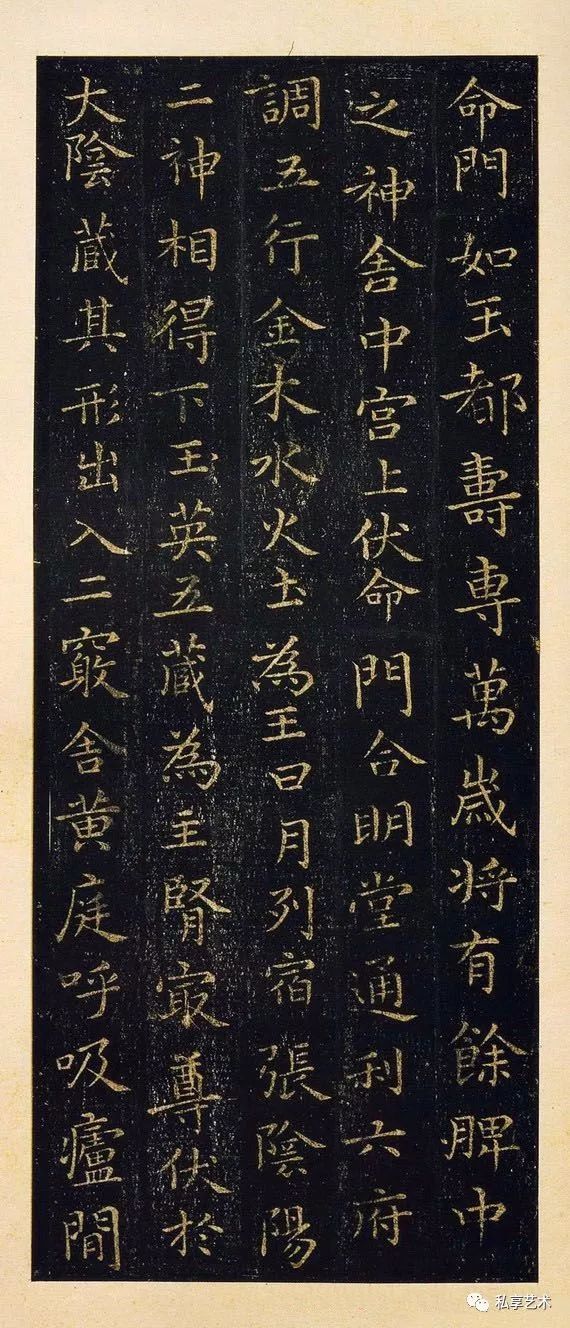 命門如王都壽專萬歲将有餘脾中
之神舎中宫上伏命門合明堂通利六府
調五行金木水火土為王日月列宿張陰陽
二神相得下玉英五藏為主腎㝡尊伏於
大陰藏其形出入二竅舎黄庭呼吸廬間
私享艺术